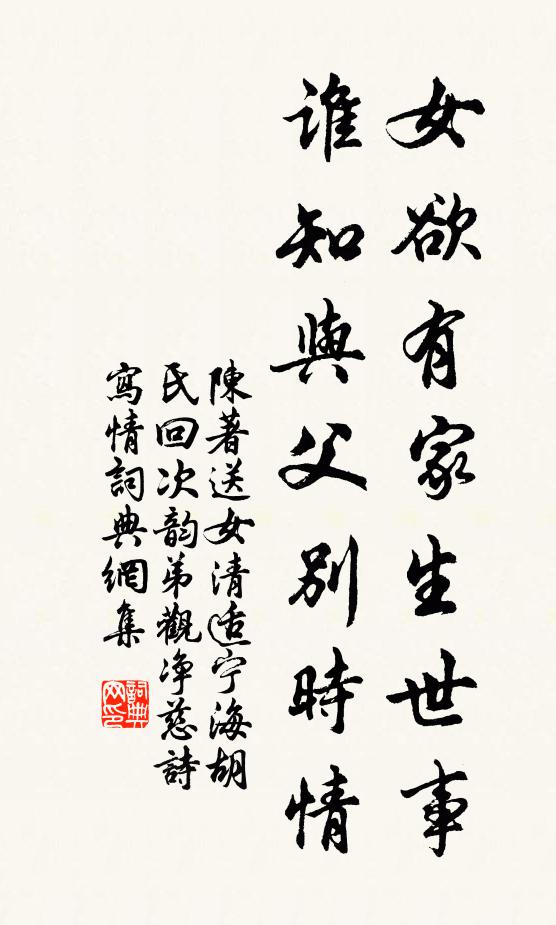 女欲有家生世事
谁知與父別時情
陳著送女清适宁海胡
氏回次韵弟觀净慈詩
寫情詞典網集
詞典网印